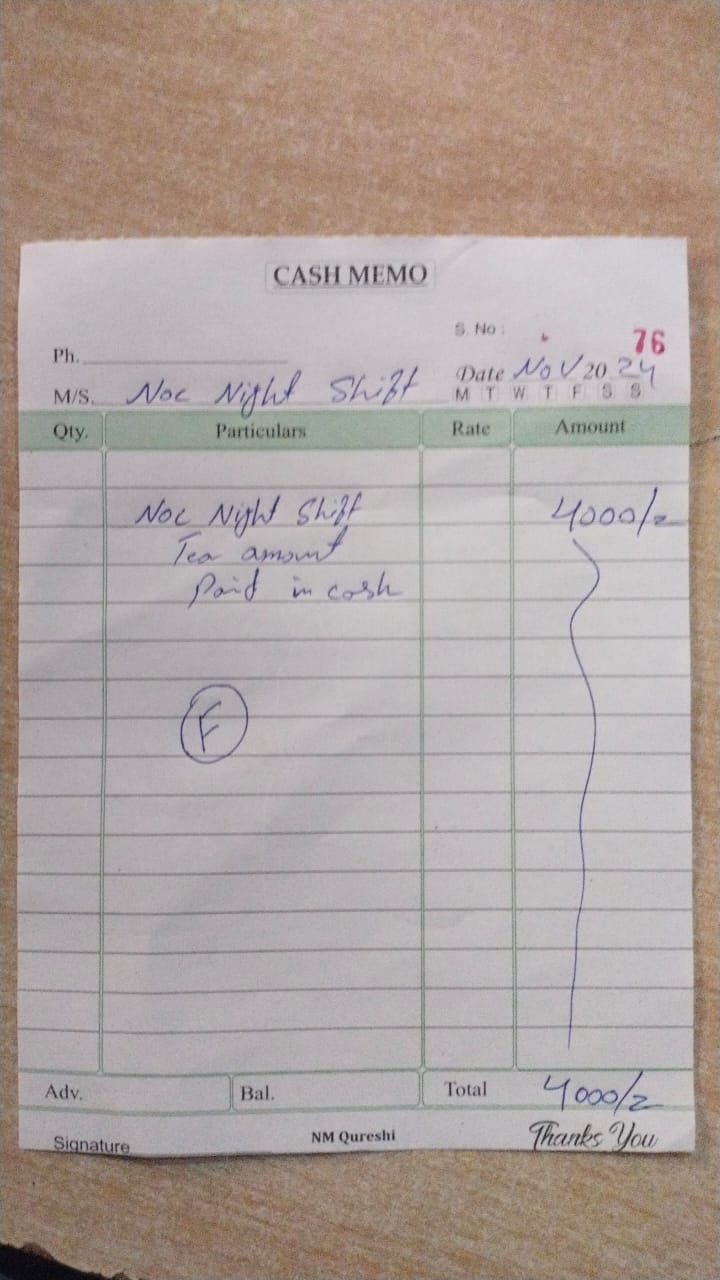 CASH MEMO
S. No :
76
Ph.
Date Nov 20 24
M/S. Noc Night Shift
M T W T F S S
Qty. Particulars Rate Amount
Noc Night Shift 4000/=
Tea amount
Paid in cash
F
Adv. Bal. Total 4000/=
Signature NM Qureshi Thanks You